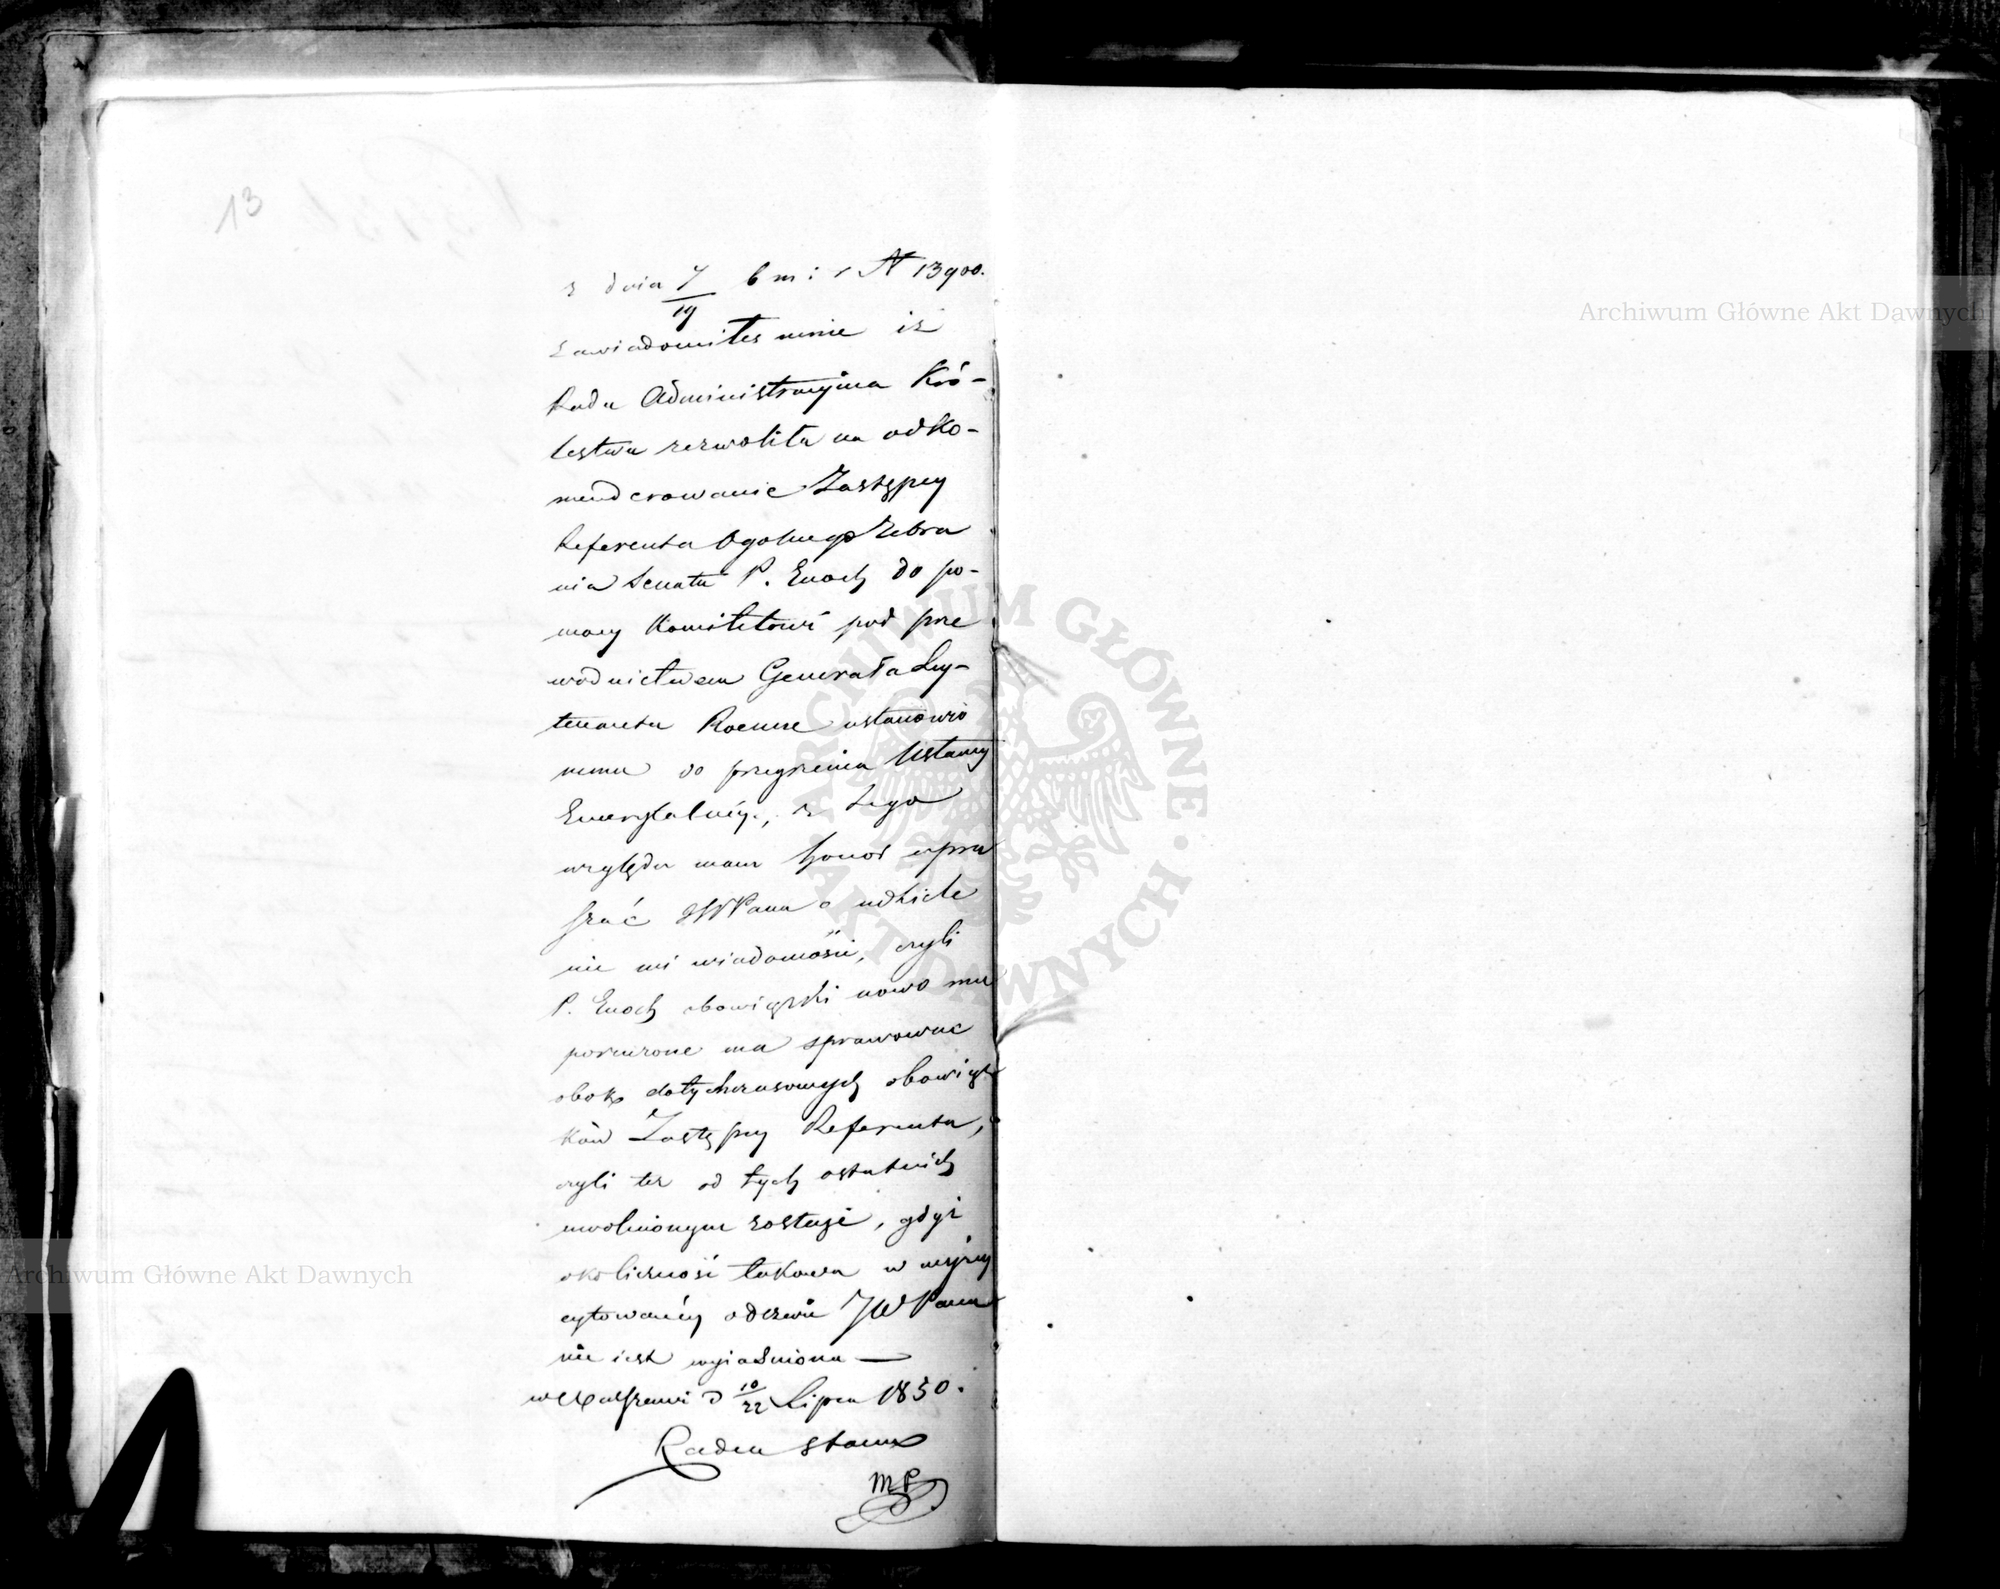 13
z dnia 7/19 b m i r N 13900.
zawiadomiłeś mnie iż
Rada Administracyjna Kró-
lestwa zezwoliła na odko-
menderowanie Zastępcy
Referenta Ogolnego Zebra
nia Senatu P. Enoch do po-
mocy Komitetowi pod prze
wodnictwem Generała Ley-
tenanta Roemre ustanowio
nemu do przejrzenia Ustawy
Emerytalnéy., z tego
względu mam honor upra
szać JWPana o udziele
nie mi wiadomości, czyli
P. Enoch obowiązki nowo mu
poruczone ma sprawować
obok dotychczasowych obowiąz
ków Zastępcy Referenta,
czyli też od tych ostatnich
uwolnionym zostaje, gdyż
okoliczność takowa w wyżey
cytowanéy odezwie JWPana
nie iest wyiaśniona —
w Warszawie d 10/22 Lipca 1850.
Radca Stanu
MP
Archiwum Główne Akt Dawnych
ARCHIWUM GŁÓWNE · AKT DAWNYCH ·
Archiwum Główne Akt Dawnych